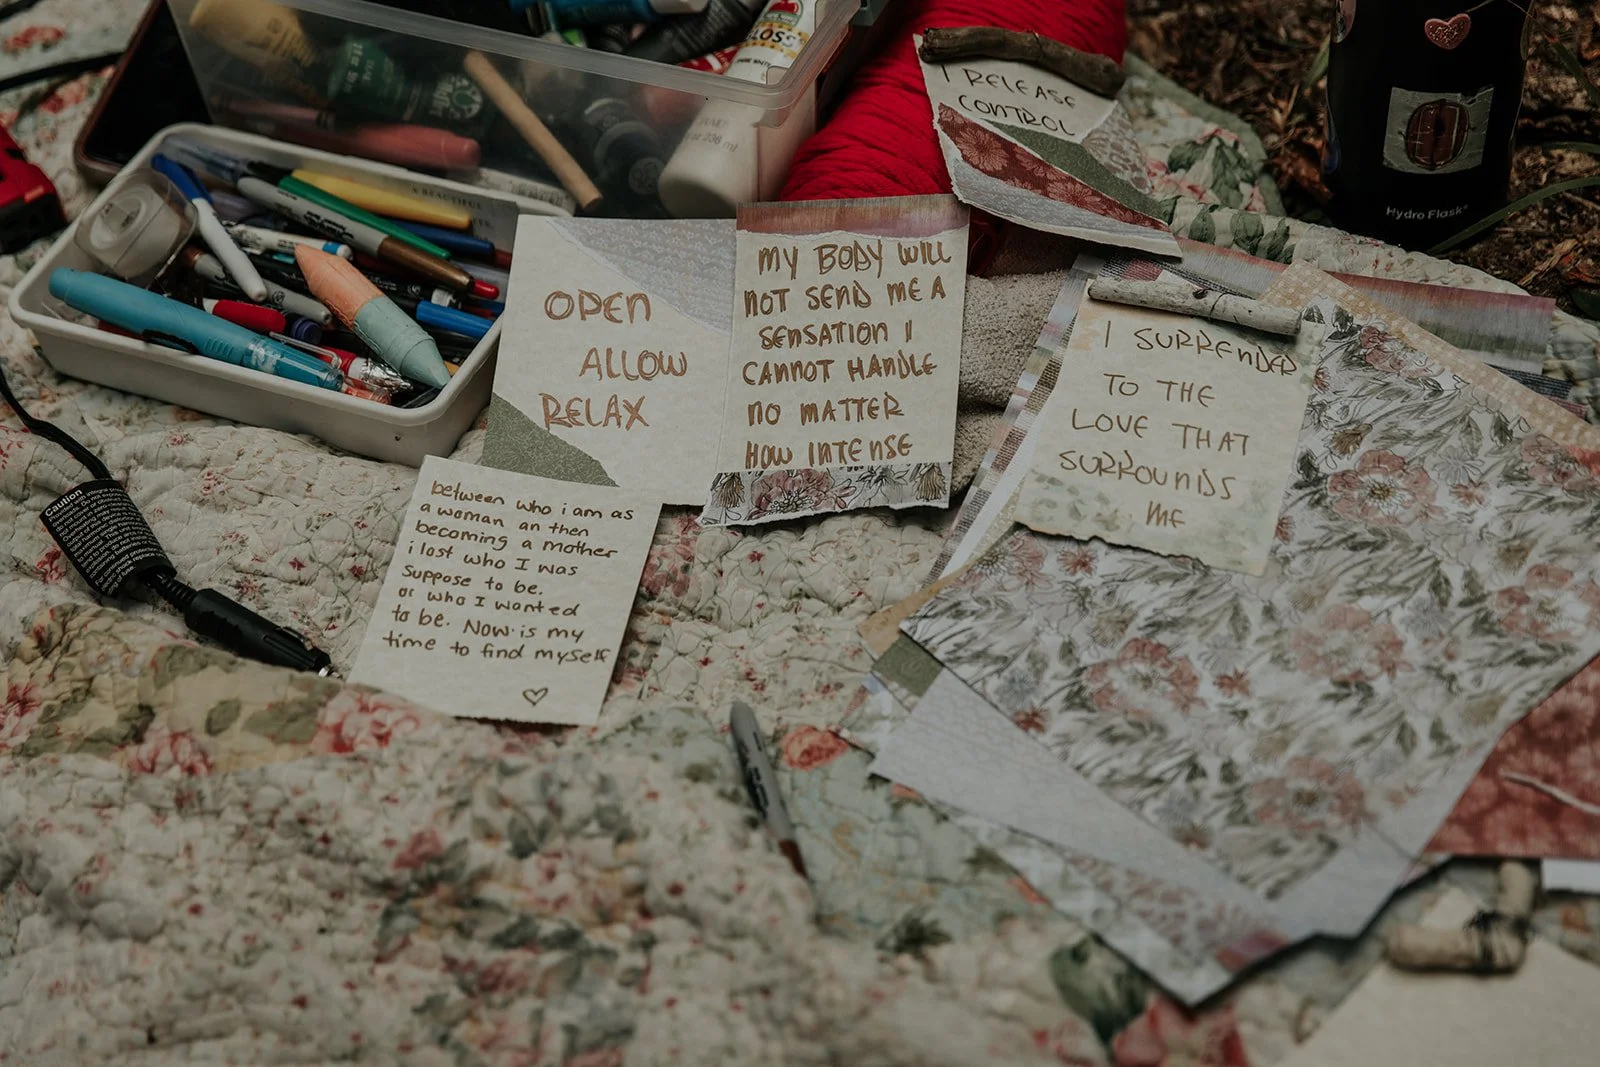 GLOSS
I RELEASE
CONTROL
Hydro Flask
A BEAUTIFUL
OPEN
ALLOW
RELAX
MY BODY WILL
NOT SEND ME A
SENSATION I
CANNOT HANDLE
NO MATTER
HOW INTENSE
I SURRENDER
TO THE
LOVE THAT
SURROUNDS
ME
between who i am as
a woman an then
becoming a mother
i lost who I was
suppose to be.
or who I wanted
to be. Now is my
time to find myself
Caution